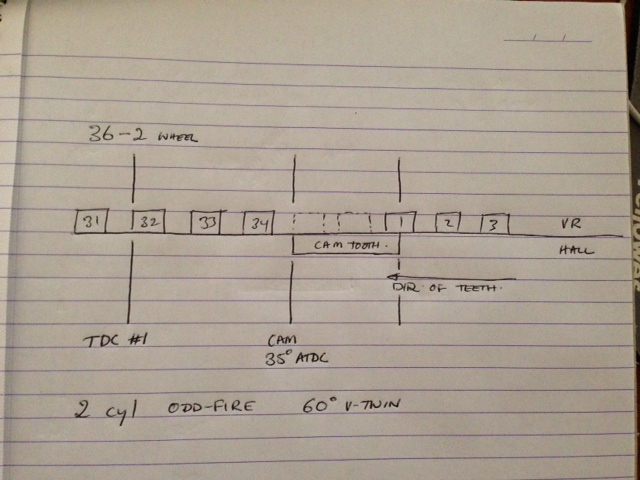 36-2 WHEEL
31 32 33 34 1 2 3 VR
CAM TOOTH. HALL
DIR. OF TEETH.
TDC #1 CAM
35° ATDC
2 cyl ODD-FIRE 60° V-TWIN